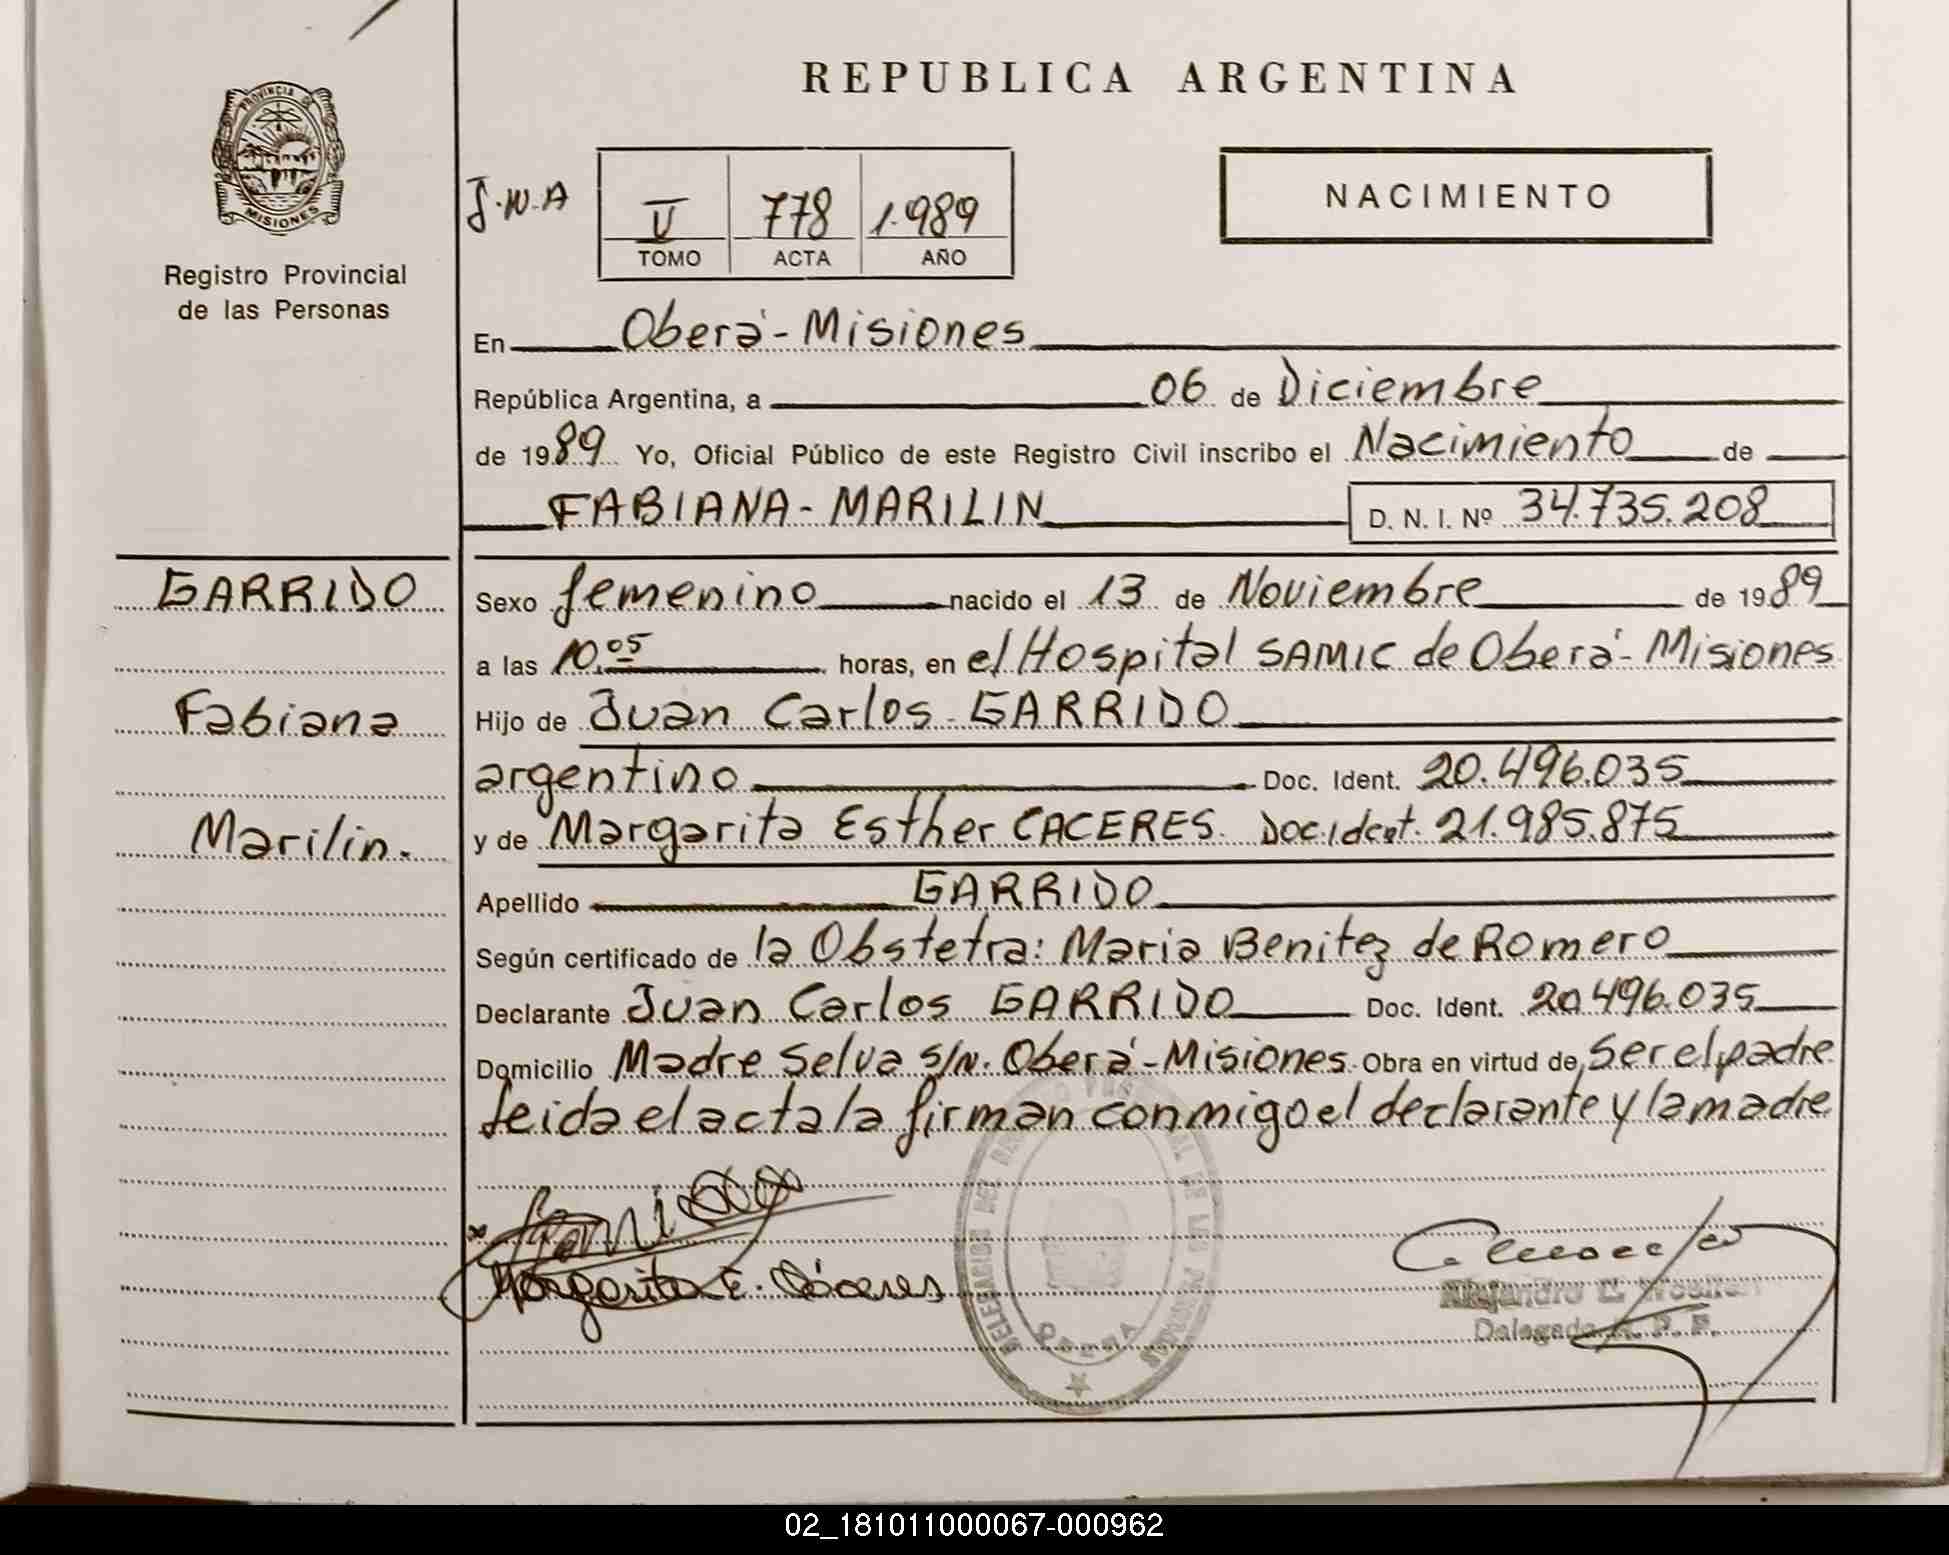 REPUBLICA ARGENTINA
PROVINCIA DE
MISIONES
Registro Provincial
de las Personas
J.N.A
V 778 1.989
TOMO ACTA AÑO
NACIMIENTO
En Oberá-Misiones
República Argentina, a 06 de Diciembre
de 1989 Yo, Oficial Público de este Registro Civil inscribo el Nacimiento de
FABIANA-MARILIN D. N. I. Nº 34.735.208
GARRIDO
Fabiana
Marilin.
Sexo femenino nacido el 13 de Noviembre de 1989
a las 10.05 horas, en el Hospital SAMIC de Oberá-Misiones
Hijo de Juan Carlos GARRIDO
argentino Doc. Ident. 20.496.035
y de Margarita Esther CACERES. Doc.Ident. 21.985.875
Apellido GARRIDO
Según certificado de la Obstetra: Maria Benitez de Romero
Declarante Juan Carlos GARRIDO Doc. Ident. 20.496.035
Domicilio Madre Selva S/N. Oberá-Misiones. Obra en virtud de, Ser el padre
leida el acta la firman conmigo el declarante y la madre
Margarita E. Cáceres
DELEGACION DEL REGISTRO PROVINCIAL DE LAS PERSONAS
OBERA
Alejandro E.
Delegado R. P. P.
02_181011000067-000962